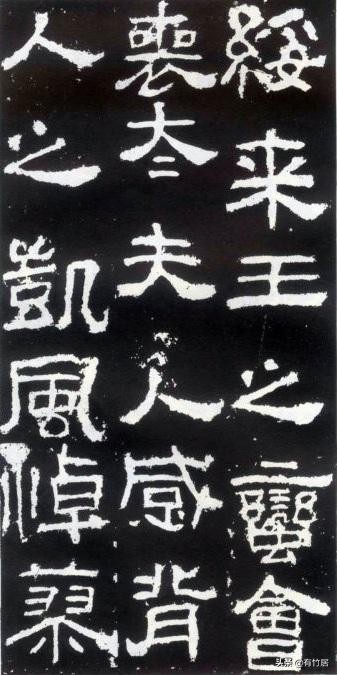 綏来王之蠻會
喪夳夫人感背
人之凱風悼蓼
头条 @有竹居